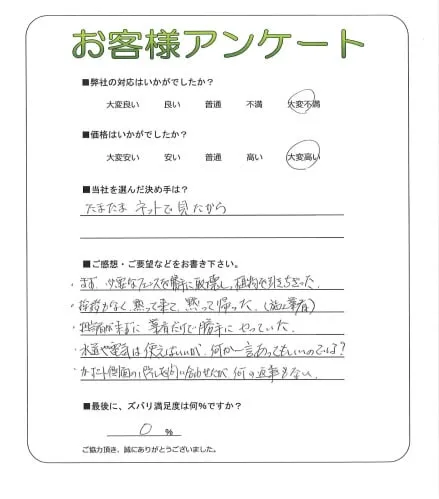 お客様アンケート
■弊社の対応はいかがでしたか？
大変良い 良い 普通 不満 大変不満
■価格はいかがでしたか？
大変安い 安い 普通 高い 大変高い
■当社を選んだ決め手は？
たまたま ネットで見たから
■ご感想・ご要望などをお書き下さい。
・まず、必要なフェンスを勝手に破壊し、植物を引きちぎった。
・挨拶がなく、黙って来て、黙って帰った。(施工業者)
・担当者が来ずに 業者だけで勝手に やっていた。
・水道や電気は使えばいいが、何か一言あってもいいのでは?
・側面の 問い合わせたが 何の返事もない。
■最後に、ズバリ満足度は何%ですか？
0 %
ご協力頂き、誠にありがとうございました。